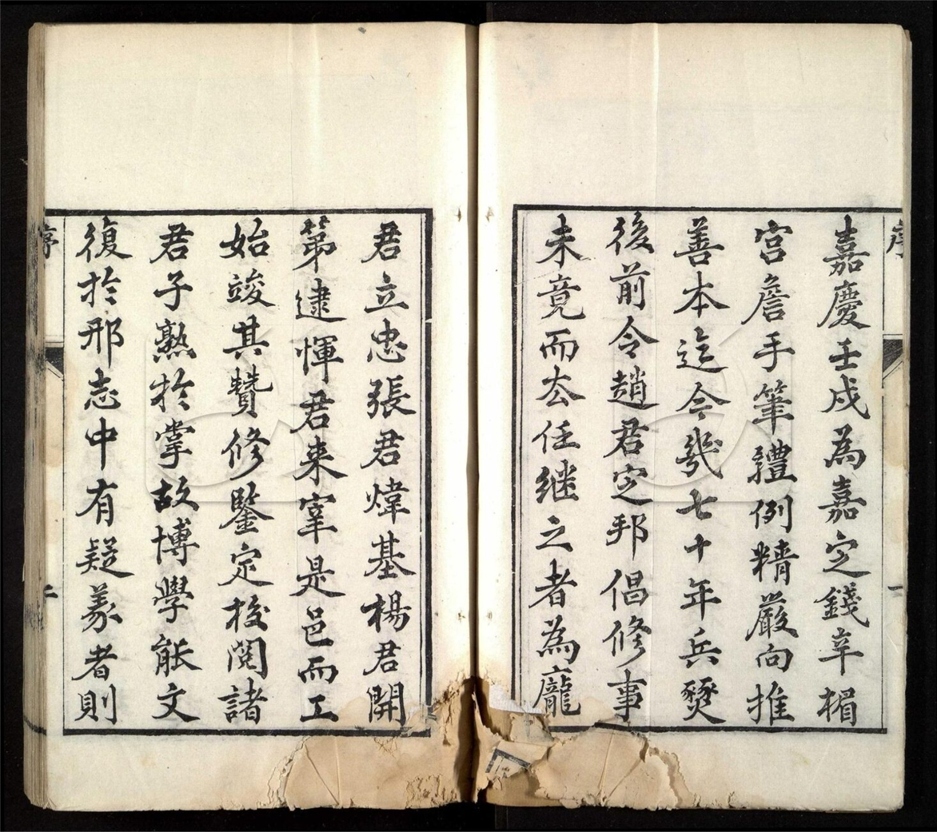 嘉慶壬戌為嘉定錢辛楣
宮詹手筆禮例精嚴向推
善本迄今幾七十年兵燹
後前令趙君定邦倡修事
未竟而去任繼之者為龐
君立忠張君煒基楊君開
第逮惲君来宰是邑而工
始竣其贊修鑒定校閱諸
君子熟於掌故博學能文
復於邢志中有疑義者則
序
一
序
二